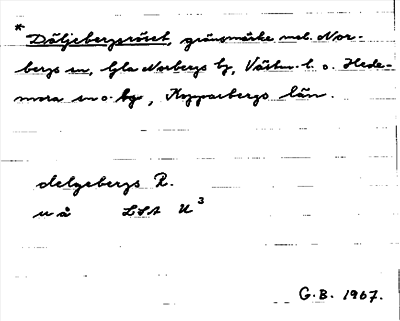 * Döljebergsröset, gränsmärke mel. Nor-
bergs sn, Gla Norbergs bg, Västm. l. o. Hede-
mora sn o. bg, Kopparbergs län.
delgebergs R.
u å LSA U³
G.B. 1967.